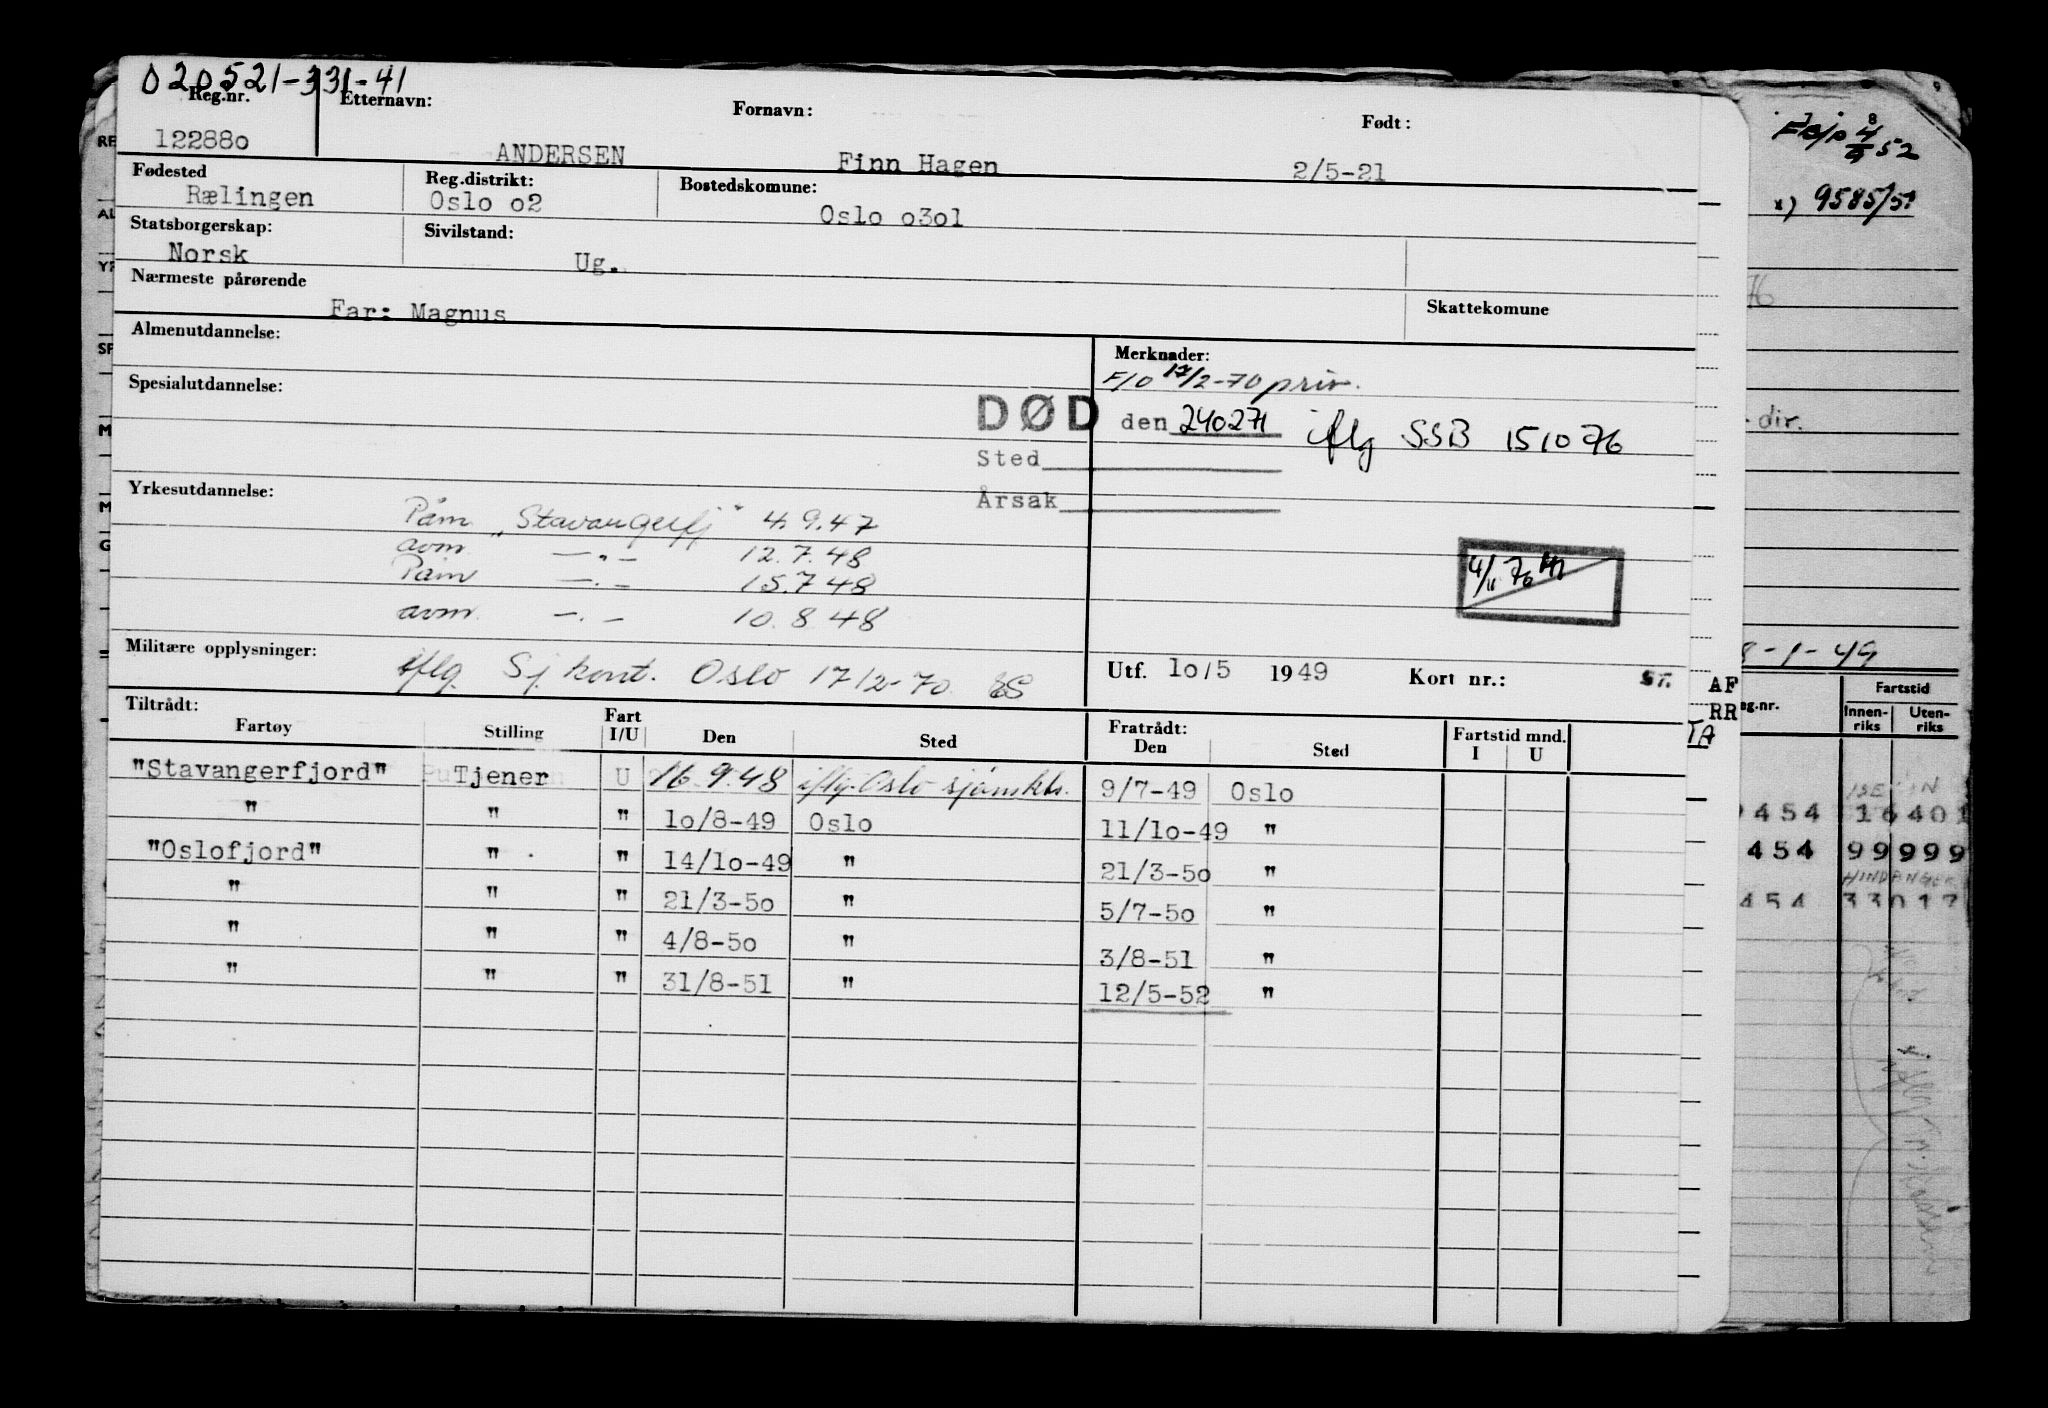 020521-331-41
Reg.nr. Etternavn: Fornavn: Født:
122880 ANDERSEN Finn Hagen 2/5-21
Fødested Reg.distrikt: Bostedskomune:
Rælingen Oslo o2 Oslo o3o1
Statsborgerskap: Sivilstand:
Norsk Ug.
Nærmeste pårørende
Far: Magnus Skattekomune
Almenutdannelse: Merknader:
F/O 17/2-70 priv.
Spesialutdannelse:
DØD den 240271 iflg SSB 151076
Sted
Årsak
Yrkesutdannelse:
Påm „Stavangerfj" 4.9.47
avm — " — 12.7.48
Påm —.— 15.7 48
avm. —.— 10.8.48
4/11 76
Militære opplysninger:
iflg. Sj.kont. Oslo 17/2-70 ES
Utf. 1o/5 1949 Kort nr.:
Tiltrådt: Fratrådt:
Fartøy Stilling Fart I/U Den Sted Den Sted Fartstid mnd. I U
"Stavangerfjord" Tjener U 16.9.48 iflg. Oslo sjømktr. 9/7-49 Oslo
" " " 1o/8-49 Oslo 11/1o-49 "
"Oslofjord" " " 14/1o-49 " 21/3-5o "
" " " 21/3-5o " 5/7-5o "
" " " 4/8-5o " 3/8-51 "
" " " 31/8-51 " 12/5-52 "
8
4/9 52
x) 9585/5
76
- dir.
8-1-49
AF
RR
TA
eg.nr. Fartstid
Innen-riks Uten-riks
454 16401
454 99999
HINDANGER
454 33017